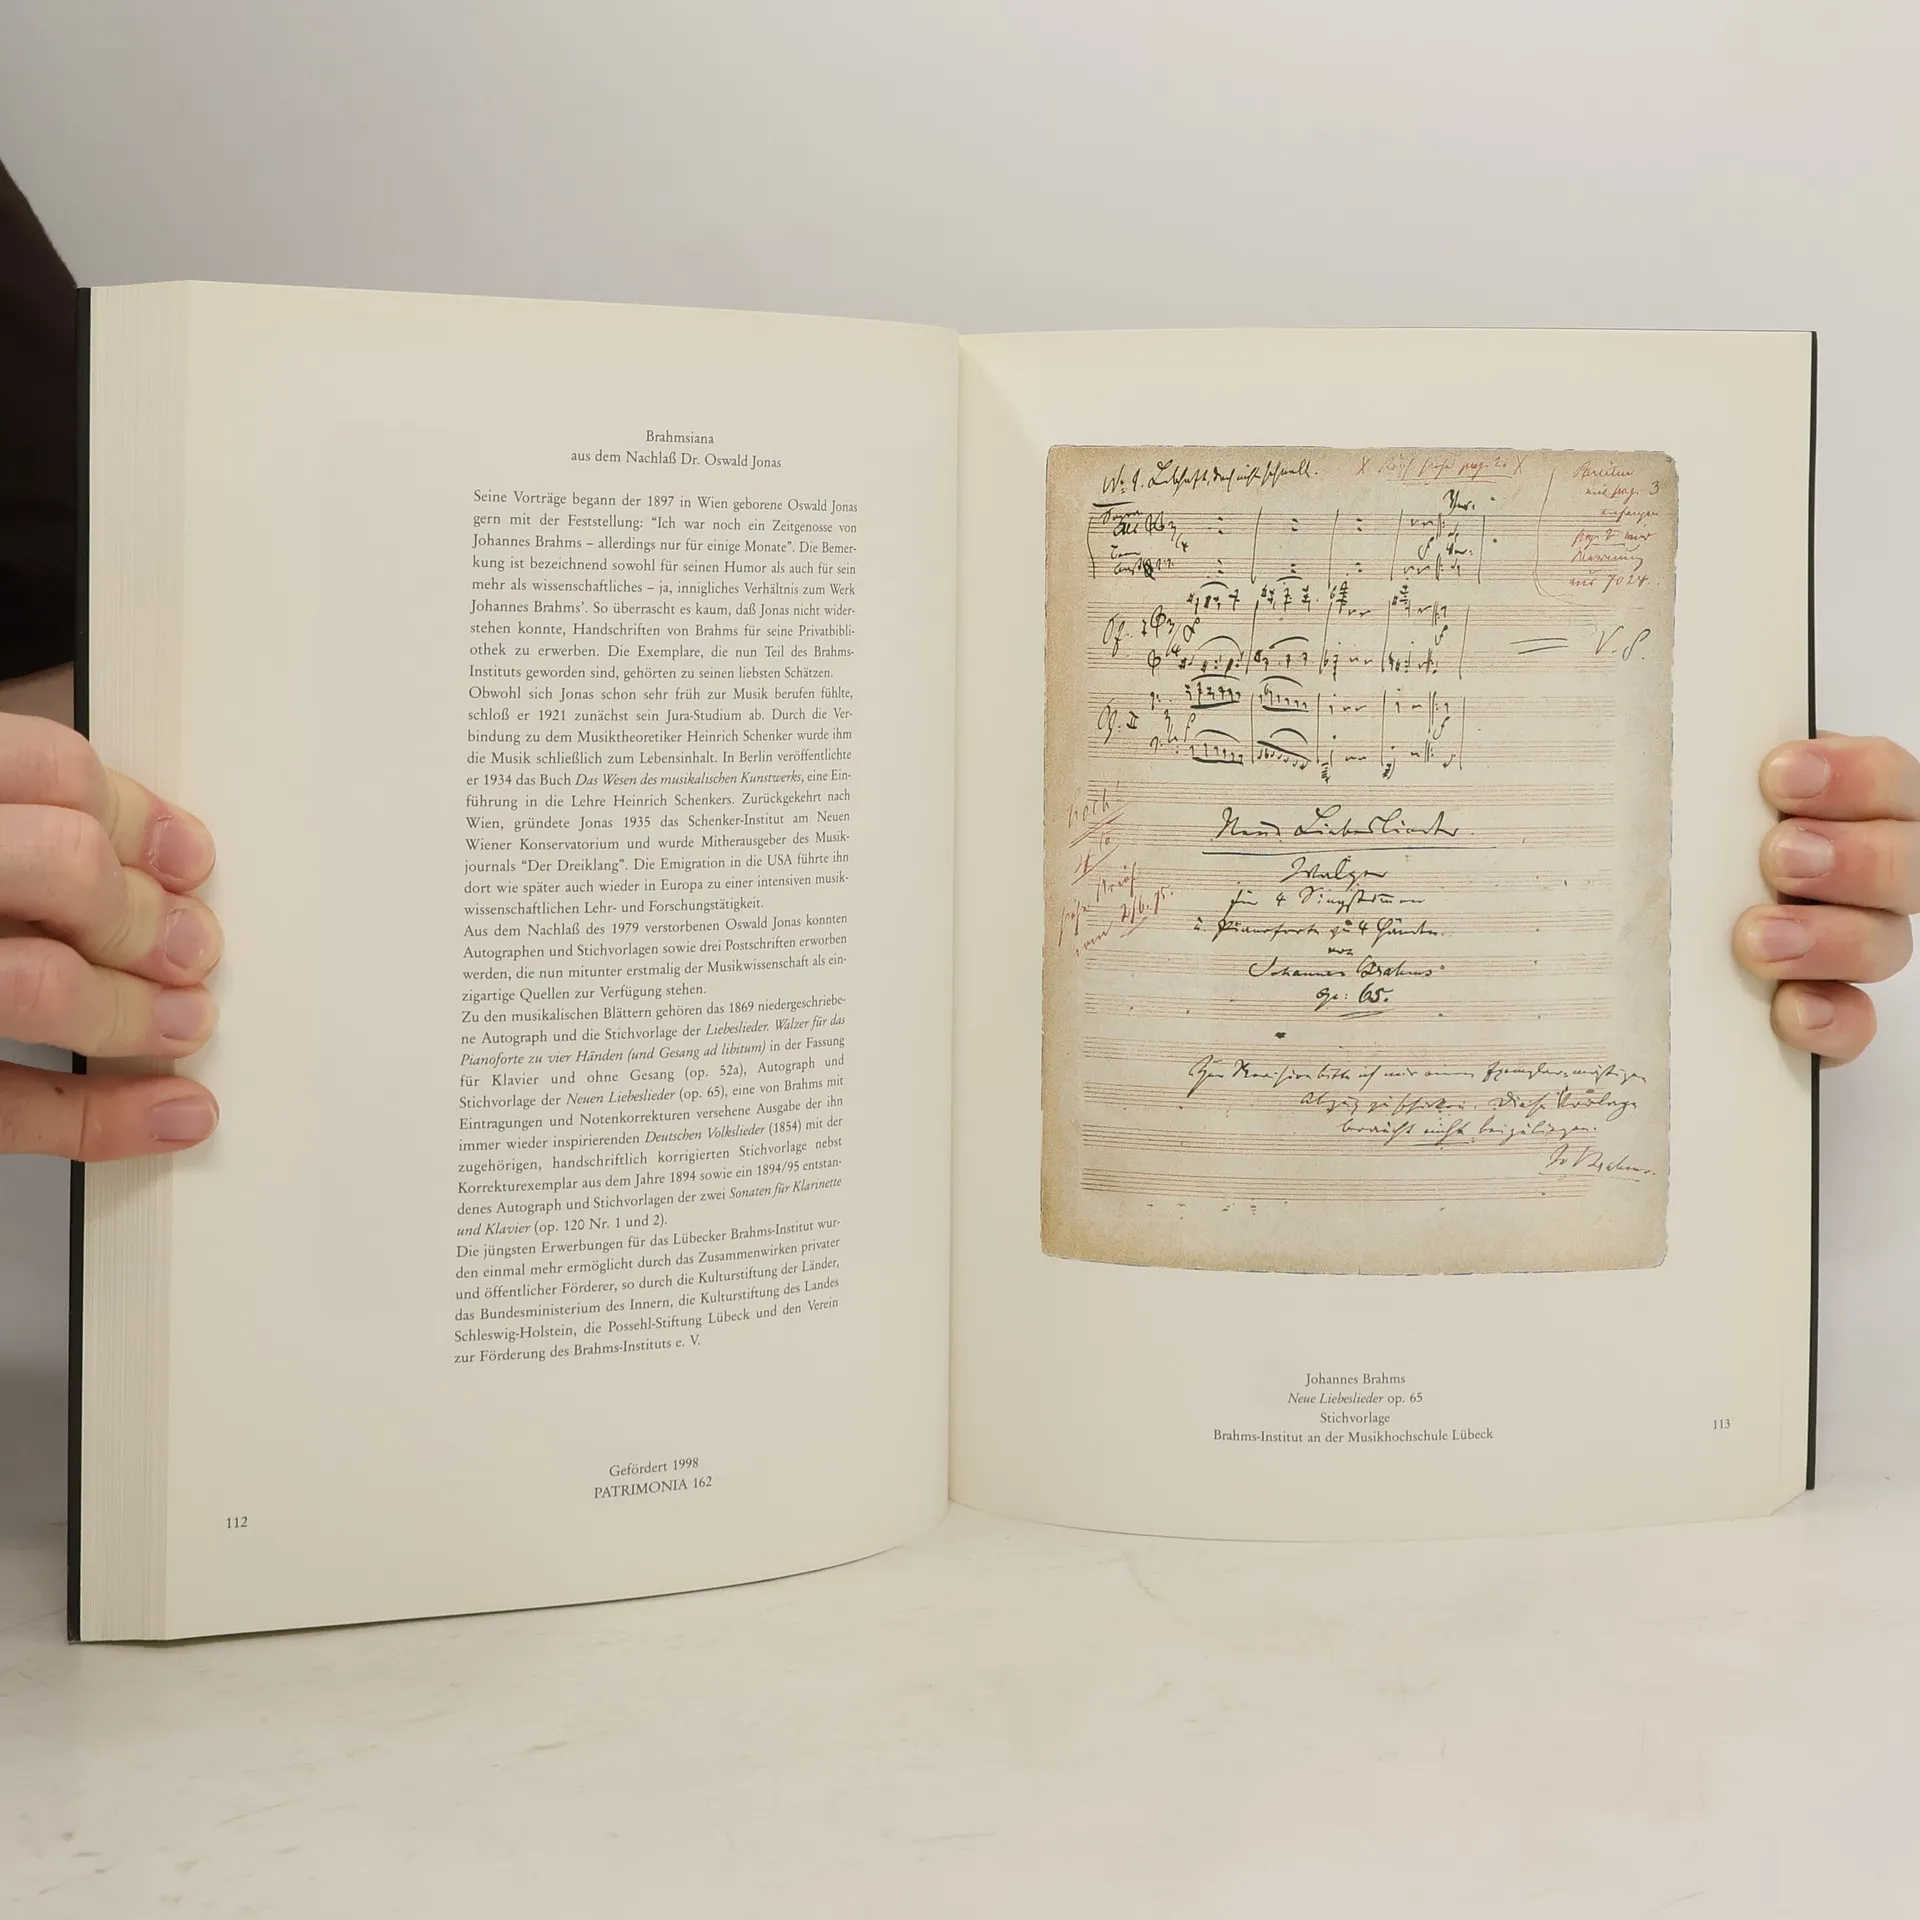 Brahmsiana
aus dem Nachlaß Dr. Oswald Jonas
Seine Vorträge begann der 1897 in Wien geborene Oswald Jonas
gern mit der Feststellung: “Ich war noch ein Zeitgenosse von
Johannes Brahms – allerdings nur für einige Monate”. Die Bemer-
kung ist bezeichnend sowohl für seinen Humor als auch für sein
mehr als wissenschaftliches – ja, innigliches Verhältnis zum Werk
Johannes Brahms’. So überrascht es kaum, daß Jonas nicht wider-
stehen konnte, Handschriften von Brahms für seine Privatbibli-
othek zu erwerben. Die Exemplare, die nun Teil des Brahms-
Instituts geworden sind, gehörten zu seinen liebsten Schätzen.
Obwohl sich Jonas schon sehr früh zur Musik berufen fühlte,
schloß er 1921 zunächst sein Jura-Studium ab. Durch die Ver-
bindung zu dem Musiktheoretiker Heinrich Schenker wurde ihm
die Musik schließlich zum Lebensinhalt. In Berlin veröffentlichte
er 1934 das Buch Das Wesen des musikalischen Kunstwerks, eine Ein-
führung in die Lehre Heinrich Schenkers. Zurückgekehrt nach
Wien, gründete Jonas 1935 das Schenker-Institut am Neuen
Wiener Konservatorium und wurde Mitherausgeber des Musik-
journals “Der Dreiklang”. Die Emigration in die USA führte ihn
dort wie später auch wieder in Europa zu einer intensiven musik-
wissenschaftlichen Lehr- und Forschungstätigkeit.
Aus dem Nachlaß des 1979 verstorbenen Oswald Jonas konnten
Autographen und Stichvorlagen sowie drei Postschriften erworben
werden, die nun mitunter erstmalig der Musikwissenschaft als ein-
zigartige Quellen zur Verfügung stehen.
Zu den musikalischen Blättern gehören das 1869 niedergeschriebe-
ne Autograph und die Stichvorlage der Liebeslieder. Walzer für das
Pianoforte zu vier Händen (und Gesang ad libitum) in der Fassung
für Klavier und ohne Gesang (op. 52a), Autograph und
Stichvorlage der Neuen Liebeslieder (op. 65), eine von Brahms mit
Eintragungen und Notenkorrekturen versehene Ausgabe der ihn
immer wieder inspirierenden Deutschen Volkslieder (1854) mit der
zugehörigen, handschriftlich korrigierten Stichvorlage nebst
Korrekturexemplar aus dem Jahre 1894 sowie ein 1894/95 entstan-
denes Autograph und Stichvorlagen der zwei Sonaten für Klarinette
und Klavier (op. 120 Nr. 1 und 2).
Die jüngsten Erwerbungen für das Lübecker Brahms-Institut wur-
den einmal mehr ermöglicht durch das Zusammenwirken privater
und öffentlicher Förderer, so durch die Kulturstiftung der Länder,
das Bundesministerium des Innern, die Kulturstiftung des Landes
Schleswig-Holstein, die Possehl-Stiftung Lübeck und den Verein
zur Förderung des Brahms-Instituts e. V.
Gefördert 1998
PATRIMONIA 162
112
No. 1. Lebhaft, doch nicht schnell.
V. S.
Neue Liebeslieder
Walzer
für 4 Singstimmen
u. Pianoforte zu 4 Händen
von
Johannes Brahms
op: 65.
Zur Revision bitte ich mir einen
Diese Vorlage
braucht nicht beizuliegen.
J. Brahms.
Johannes Brahms
Neue Liebeslieder op. 65
Stichvorlage
Brahms-Institut an der Musikhochschule Lübeck
113